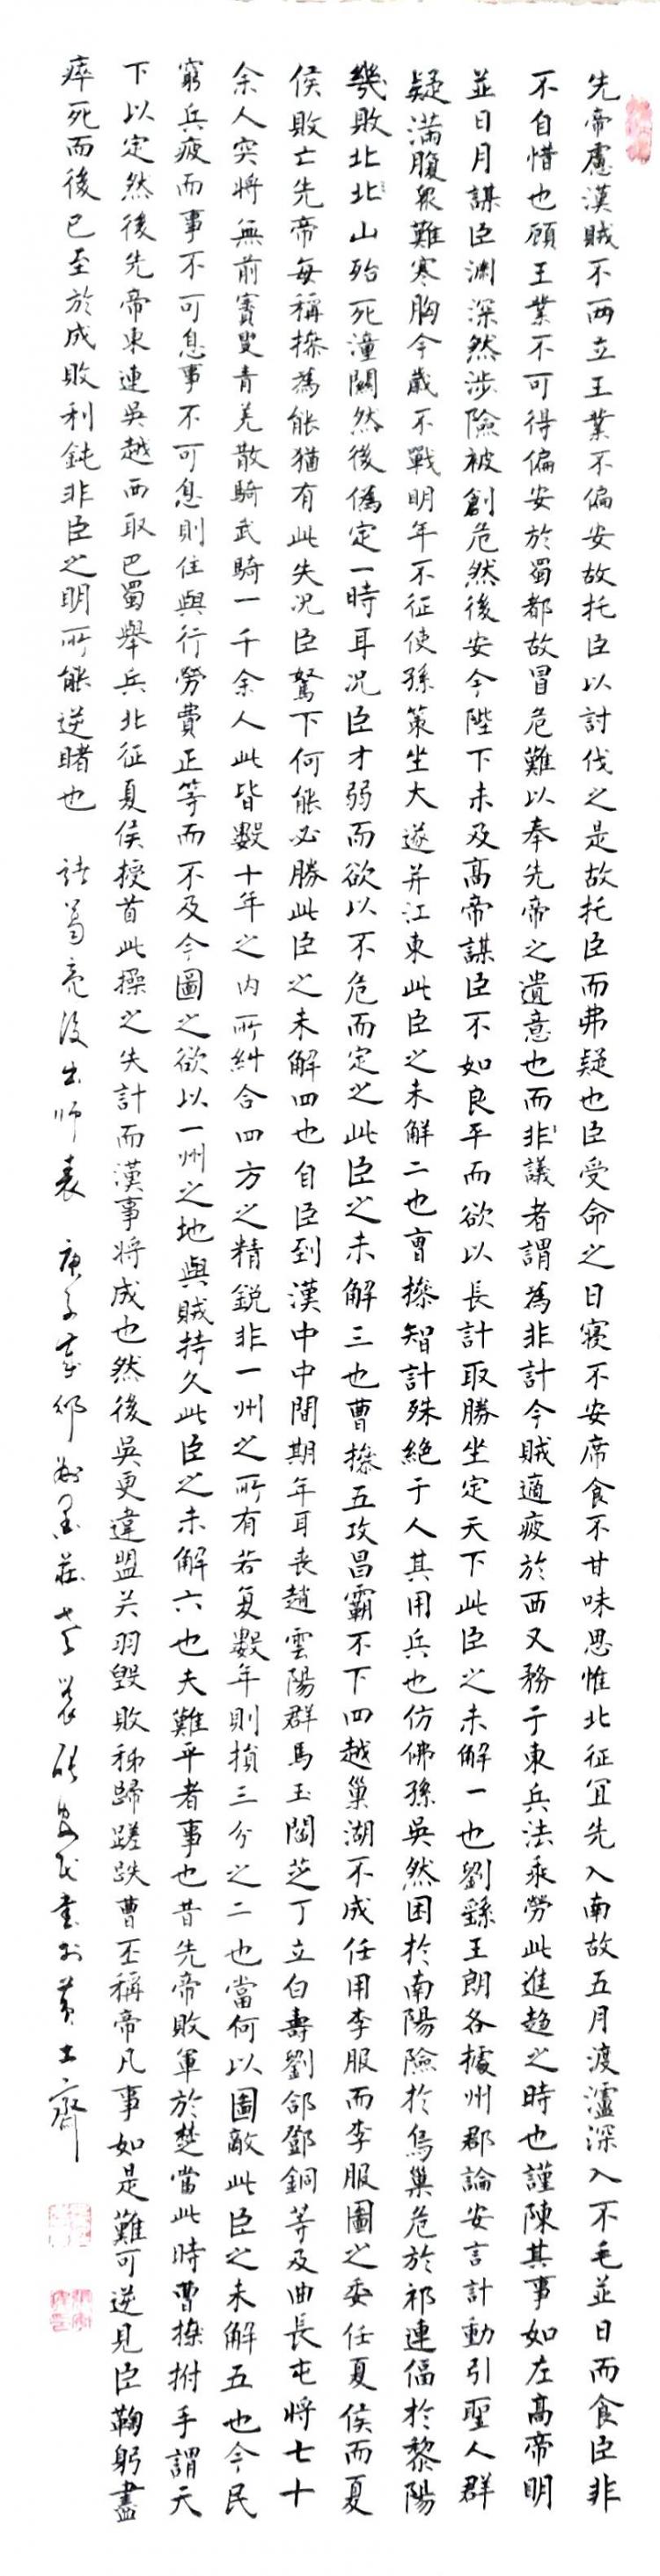 先帝慮漢賊不兩立王業不偏安故托臣以討伐之是故托臣而弗疑也臣受命之日寢不安席食不甘味思惟北征冝先入南故五月渡瀘深入不毛並日而食臣非
不自惜也顧王業不可得偏安於蜀都故冒危難以奉先帝之遺意也而非議者謂為非計今賊適疲於西又務于東兵法乘勞此進趋之時也謹陳其事如左高帝明
並日月謀臣渊深然涉險被創危然後安今陛下未及高帝謀臣不如良平而欲以長計取勝坐定天下此臣之未解一也劉繇王朗各據州郡論安言計動引聖人群
疑滿腹衆難寒胸今歲不戰明年不征使孫策坐大遂并江東此臣之未解二也曹操智計殊絶于人其用兵也仿佛孫吳然困於南陽險於烏巢危於祁連偪於黎陽
幾敗北北山殆死潼關然後僞定一時耳况臣才弱而欲以不危而定之此臣之未解三也曹操五攻昌霸不下四越巢湖不成任用李服而李服圖之委任夏侯而夏
侯敗亡先帝每稱操為能猶有此失况臣駑下何能必勝此臣之未解四也自臣到漢中中間期年耳丧趙雲陽群馬玉閻芝丁立白壽劉郃鄧銅等及曲長屯將七十
余人突將無前賨叟青羌散騎武騎一千余人此皆數十年之内所糾合四方之精鋭非一州之所有若复數年則損三分之二也當何以圖敵此臣之未解五也今民
窮兵疲而事不可息事不可息則住與行勞費正等而不及今圖之欲以一州之地與賊持久此臣之未解六也夫難平者事也昔先帝敗軍於楚當此時曹操拊手謂天
下以定然後先帝東連吳越西取巴蜀舉兵北征夏侯授首此操之失計而漢事将成也然後吳更違盟关羽毀敗秭歸蹉跌曹丕稱帝凡事如是難可逆見臣鞠躬盡
瘁死而後已至於成敗利鈍非臣之明所能逆睹也 諸葛亮後出师表 庚子 書於黄土齋